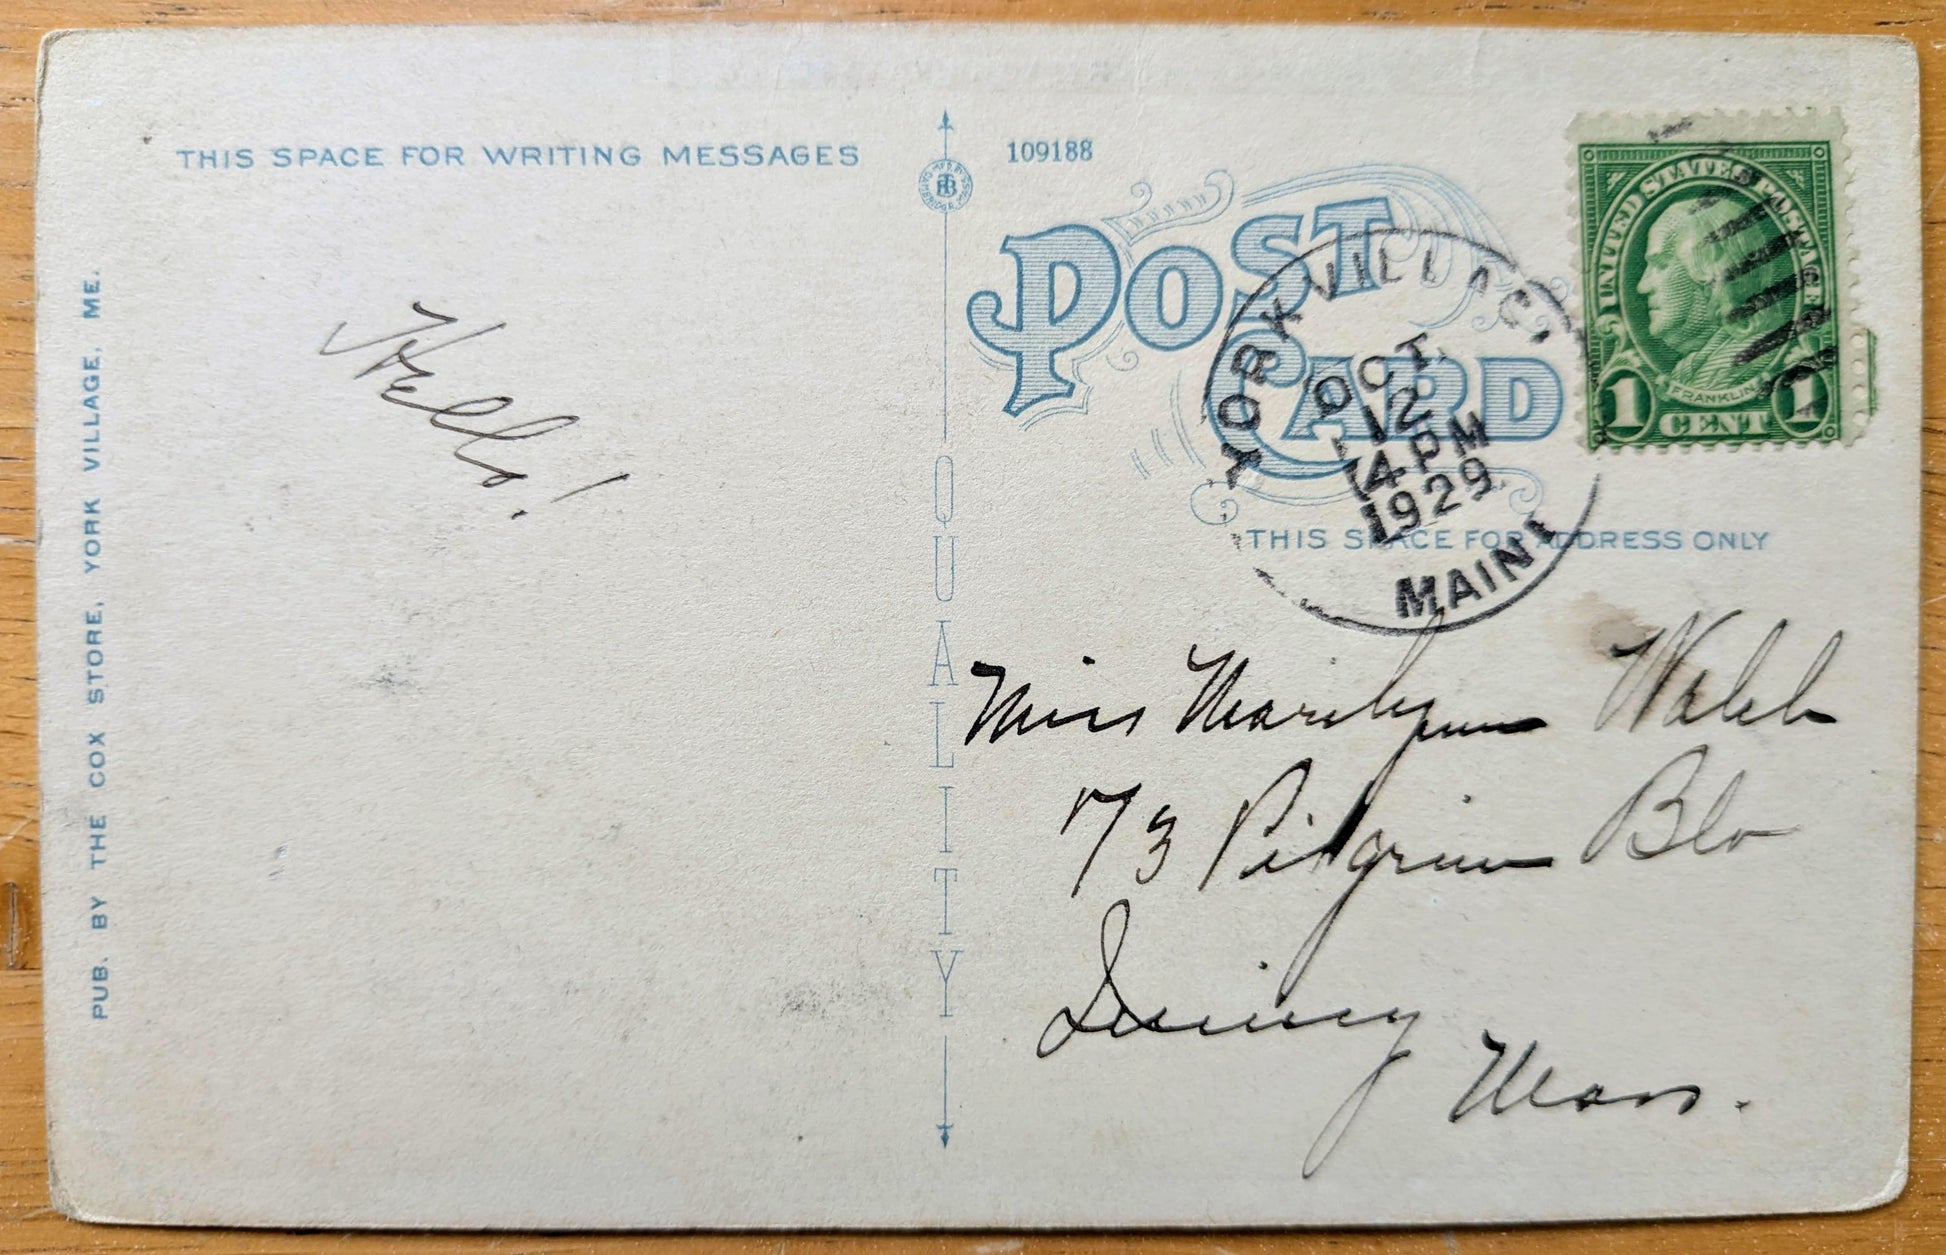 THIS SPACE FOR WRITING MESSAGES
109188
POST
CARD
UNITED STATES POSTAGE
FRANKLIN
1 CENT 1
YORK VILLAGE,
OCT
12
4 PM
1929
MAINE
THIS SPACE FOR ADDRESS ONLY
PUB. BY THE COX STORE, YORK VILLAGE, ME.
QUALITY
Hello!
Miss Marilynn Webb
73 Pilgrim Blv
Quincy
Mass.